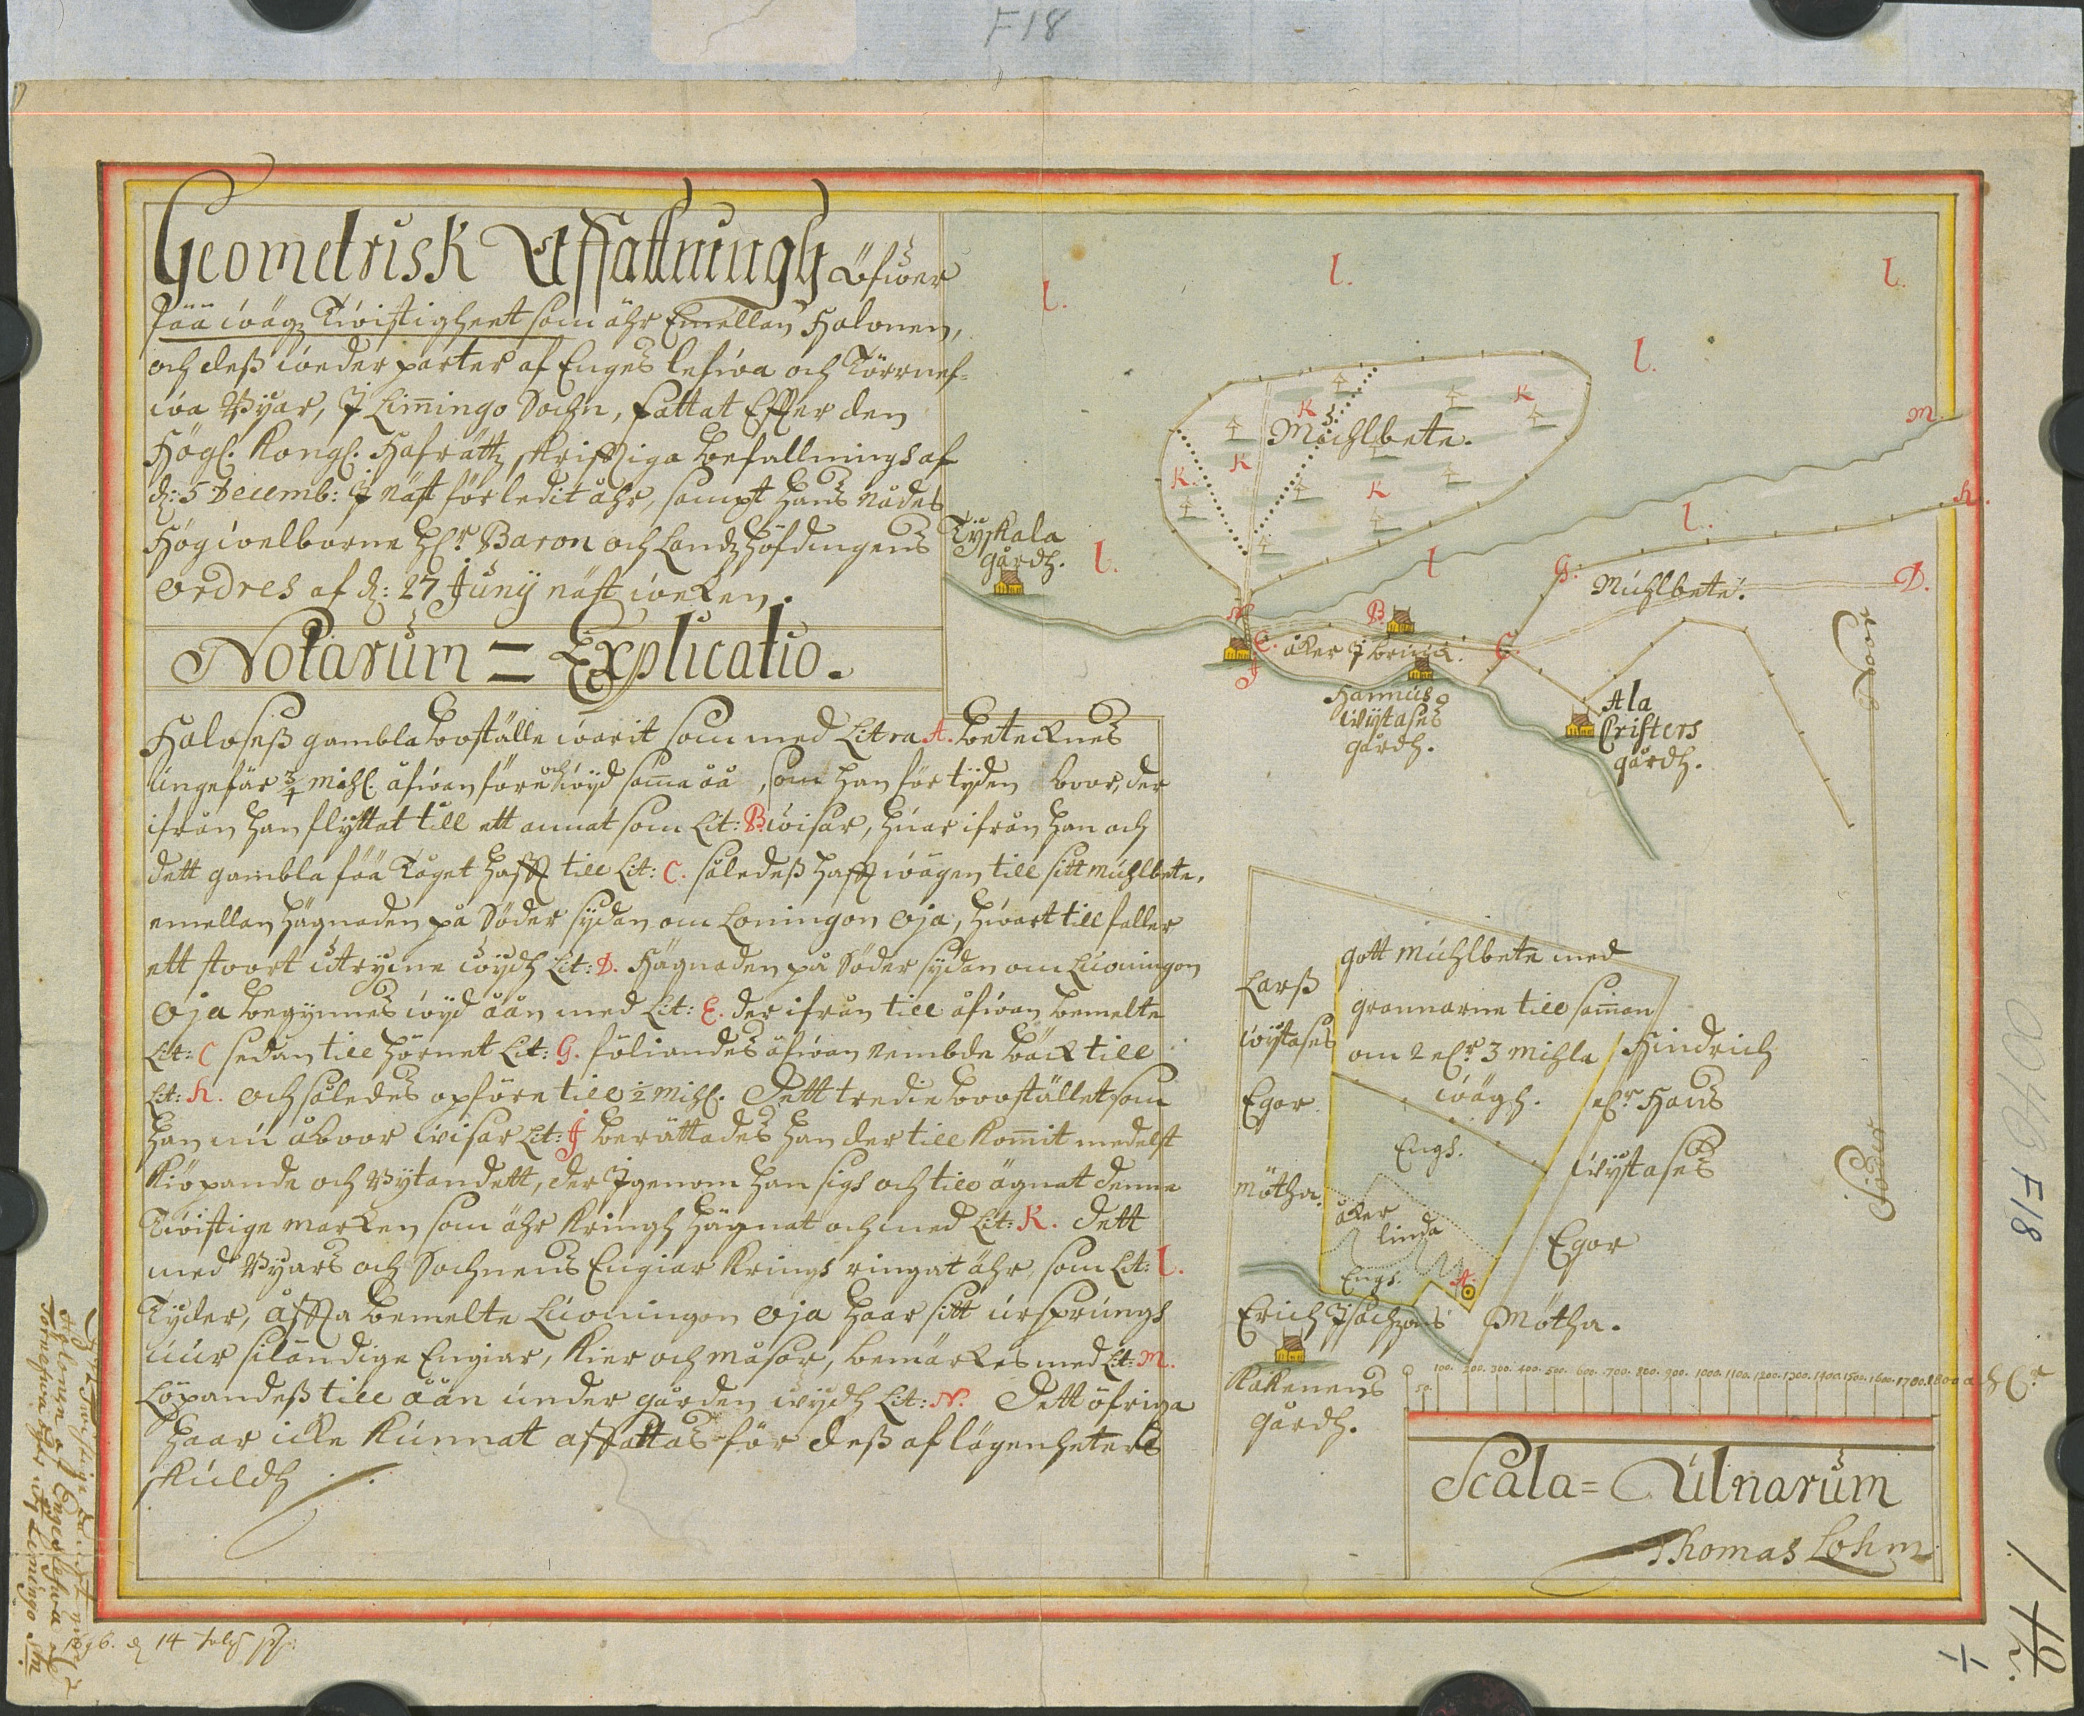 F18
Geometrisk Affattningh Öfwer
fää wägz Twistigheet som ähr Emellan Halonen,
och deß weder parter af Engeslefwa och Törnef=
wa Byar, J Limingo Sochn, fattat Effter den
Högl. Kongl. Hofrättz skrifftiga befallnings af
d: 5 Decemb: J näst förledit åhr, sampt hans nådes
Högwelborne H.r Baron och Landzhöfdingens
Ordres af d: 27 Junij näst weken.
Notarum = Explicatio.
Haloseß gambla booställe warit som med Litra A. beteknes
ungefär 3/4 mihl. åfwan före och wijd samma åå, som han för tijden boor, der
ifrån han flyttat till ett annat som Lit: B. wisar, huar ifrån han och
dett gambla fää Tåget hafft till Lit: C. såledeß hafft wägen till sitt muhlbete,
emellan hägnaden på Söder sydan om Loningon Oja, hwart till faller
ett stoort utryme wijdh Lit: D. Hägnaden på Söder sydan om Luoningon
Oja begynnes wijd åån med Lit: E. der ifrån till åfwan bemelte
Lit: C sedan till hörnet Lit: G. föliandes åfwan nembde bäck till
Lit: h. och således opföre till 1/2 mihl. Dett tredie boostället som
han nu åboor wisar Lit: J berättades han der till kommit medelst
Kiöpande och Bytandett, der Jgenom han sigh och till ägnat denne
Twistige marken som ähr kringh hägnat och med Lit: K. dett
med Byars och Sochnens Engiar krings ringat ähr, som Lit: l.
Tyder, åffta bemelte Luoningon Oja haar sitt ursprungh
uur siländige Engiar, kier och måsar, bemärkes med Lit: M.
Löpandeß till åån under gården wijdh Lit: N. Dett öfriga
haar icke kunnat affattas för deß aflägenheters
skuldh
l.
l.
l.
l.
M.
Muhlbete.
K
K
K.
K
K
h.
l.
Tyskala
gårdh.
l.
l
G.
Muhlbete.
D.
N
B.
E.
åker J brink.
C.
J
Hannus
Wijtases
gårdh.
Ala
Cristers
gårdh.
Norr
Söder
gott Muhlbete med
grannarne till samman
om 2 ell.r 3 mihle
wägh.
Larß
Wijtases
Egor
Mötha.
Hindrich
ell.r Hans
Wijtases
Egor
Mötha.
Engh.
åker
linda
Engh.
A.
Erich Jsachzons
Kakenens
gårdh.
50. 100. 200. 300. 400. 500. 600. 700. 800. 900. 1000. 1100. 1200. 1300. 1400. 1500. 1600. 1700. 1800
Scala = Ulnarum
Thomas Lohm
F18
1